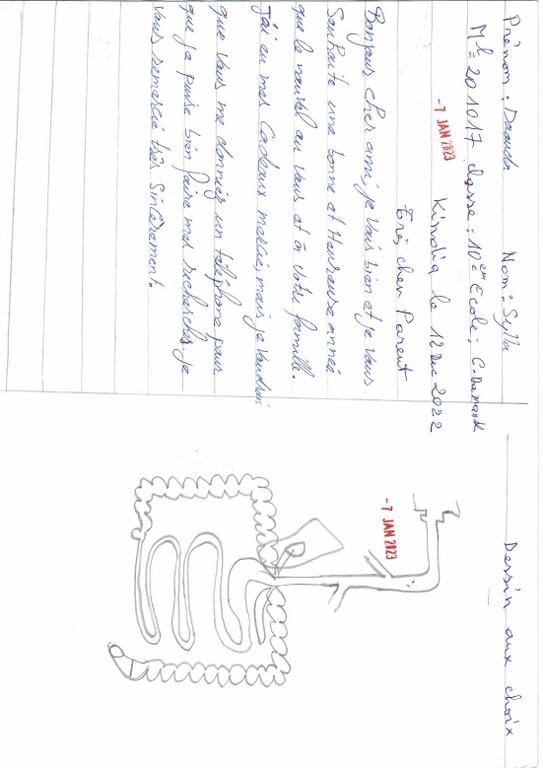 Prénom : Daouda Nom : Sylla
Ml = 201017 classe : 10èm Ecole : C.
-7 JAN 2023 Kindia le 12 Dec 2022
Trè, cher Parent
Bonjour, cher ami, je vais bien et je vous
Souhaite une bonne et Heureuse année
que le nouvel an vous et à votre famille.
J'ai eu mes Cadeaux mercie, mais je voudrais
que vous me donnier un téléphone pour
que je puise bien faire mes recherches. je
vous remercie très Sincèrement.
Dessin aux choix
-7 JAN 2023